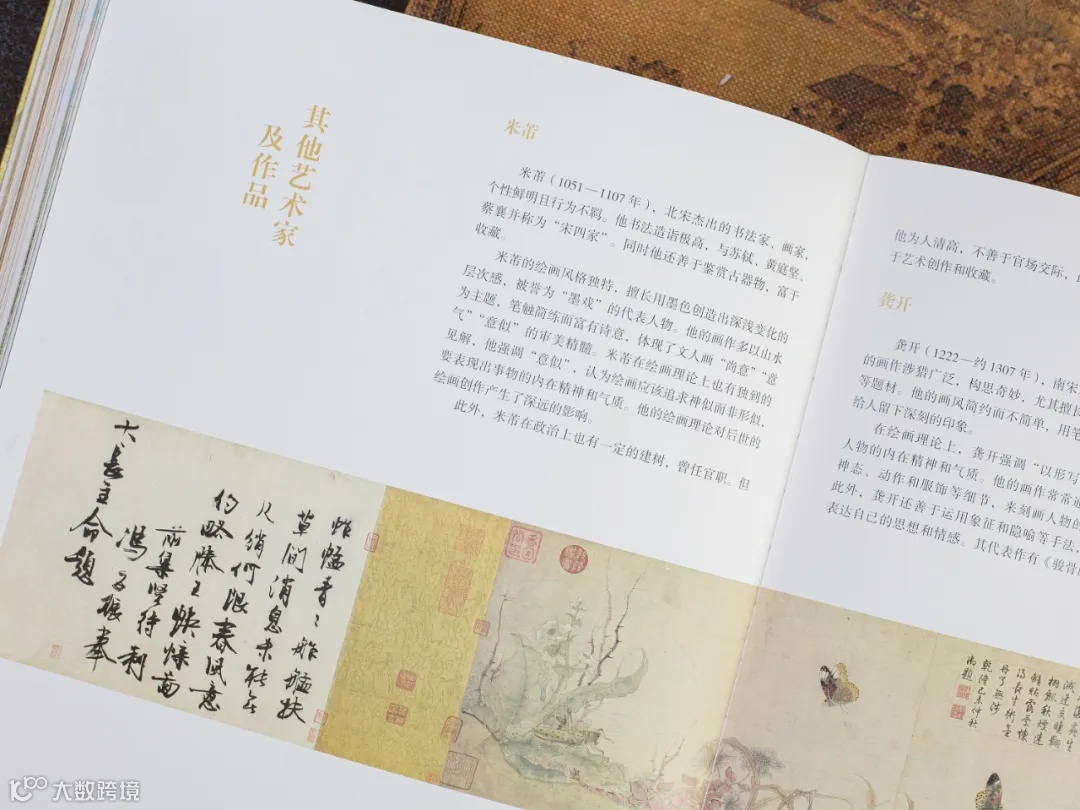 其他艺术家
及作品
米芾
米芾（1051—1107 年），北宋杰出的书法家、画家，
个性鲜明且行为不羁。他书法造诣极高，与苏轼、黄庭坚、
蔡襄并称为“宋四家”。同时他还善于鉴赏古器物，富于
收藏。
米芾的绘画风格独特，擅长用墨色创造出深浅变化的
层次感，被誉为“墨戏”的代表人物。他的画作多以山水
为主题，笔触简练而富有诗意，体现了文人画“尚意”“意
气”“意似”的审美精髓。米芾在绘画理论上也有独到的
见解，他强调“意似”，认为绘画应该追求神似而非形似，
要表现出事物的内在精神和气质。他的绘画理论对后世的
绘画创作产生了深远的影响。
此外，米芾在政治上也有一定的建树，曾任官职。但
他为人清高，不善于官场交际，
于艺术创作和收藏。
龚开
龚开（1222—约 1307 年），南宋
的画作涉猎广泛，构思奇妙，尤其擅长
等题材。他的画风简约而不简单，用笔
给人留下深刻的印象。
在绘画理论上，龚开强调“以形写
人物的内在精神和气质。他的画作常常通
神态、动作和服饰等细节，来刻画人物的
此外，龚开还善于运用象征和隐喻等手法，
表达自己的思想和情感。其代表作有《骏骨
蚱蜢青〻舴艋扶
草间消息未能无
尺绡何限春風意
約略滕王蛱蝶啚
前集賢待制
馮子振奉
大長主命題
乾隆己未仲秋
大数跨境